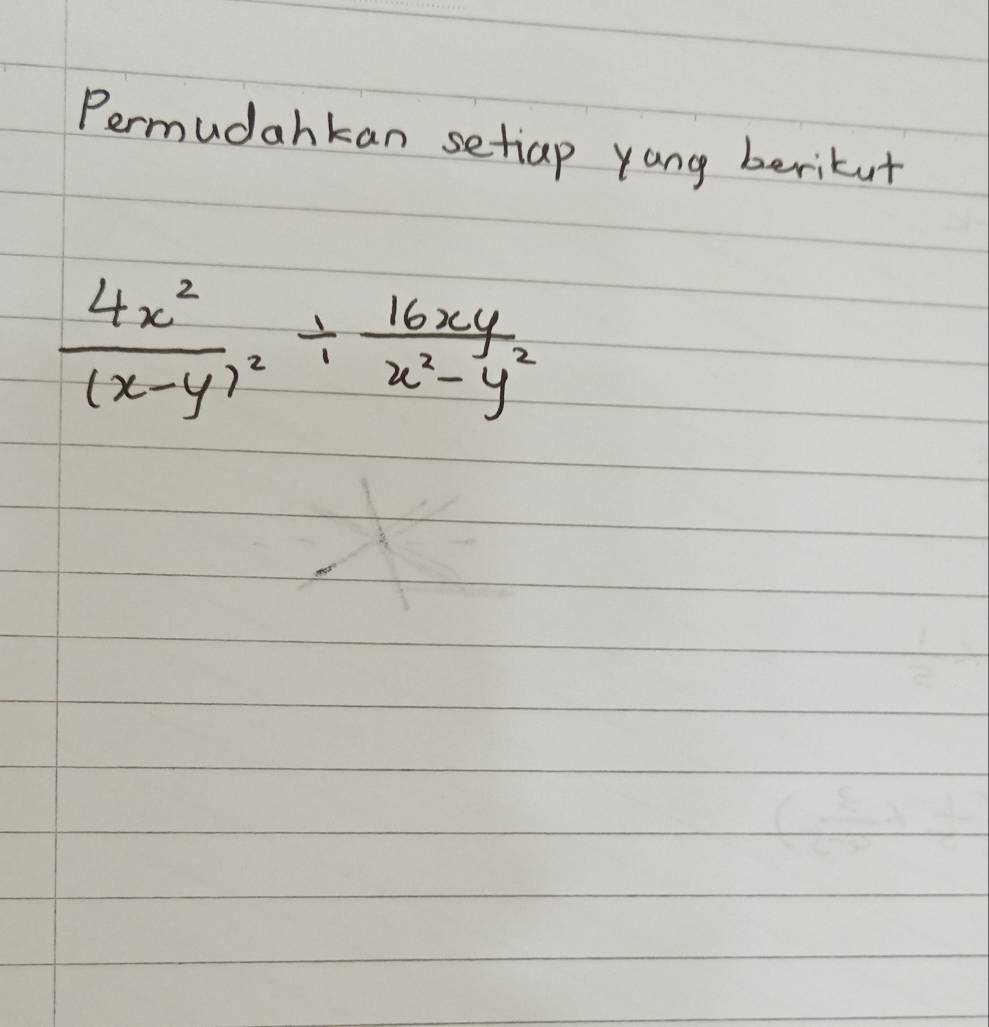 Permudahkan setiap yang berikut
4x²/(x-y)² ÷ 16xy/x²-y²